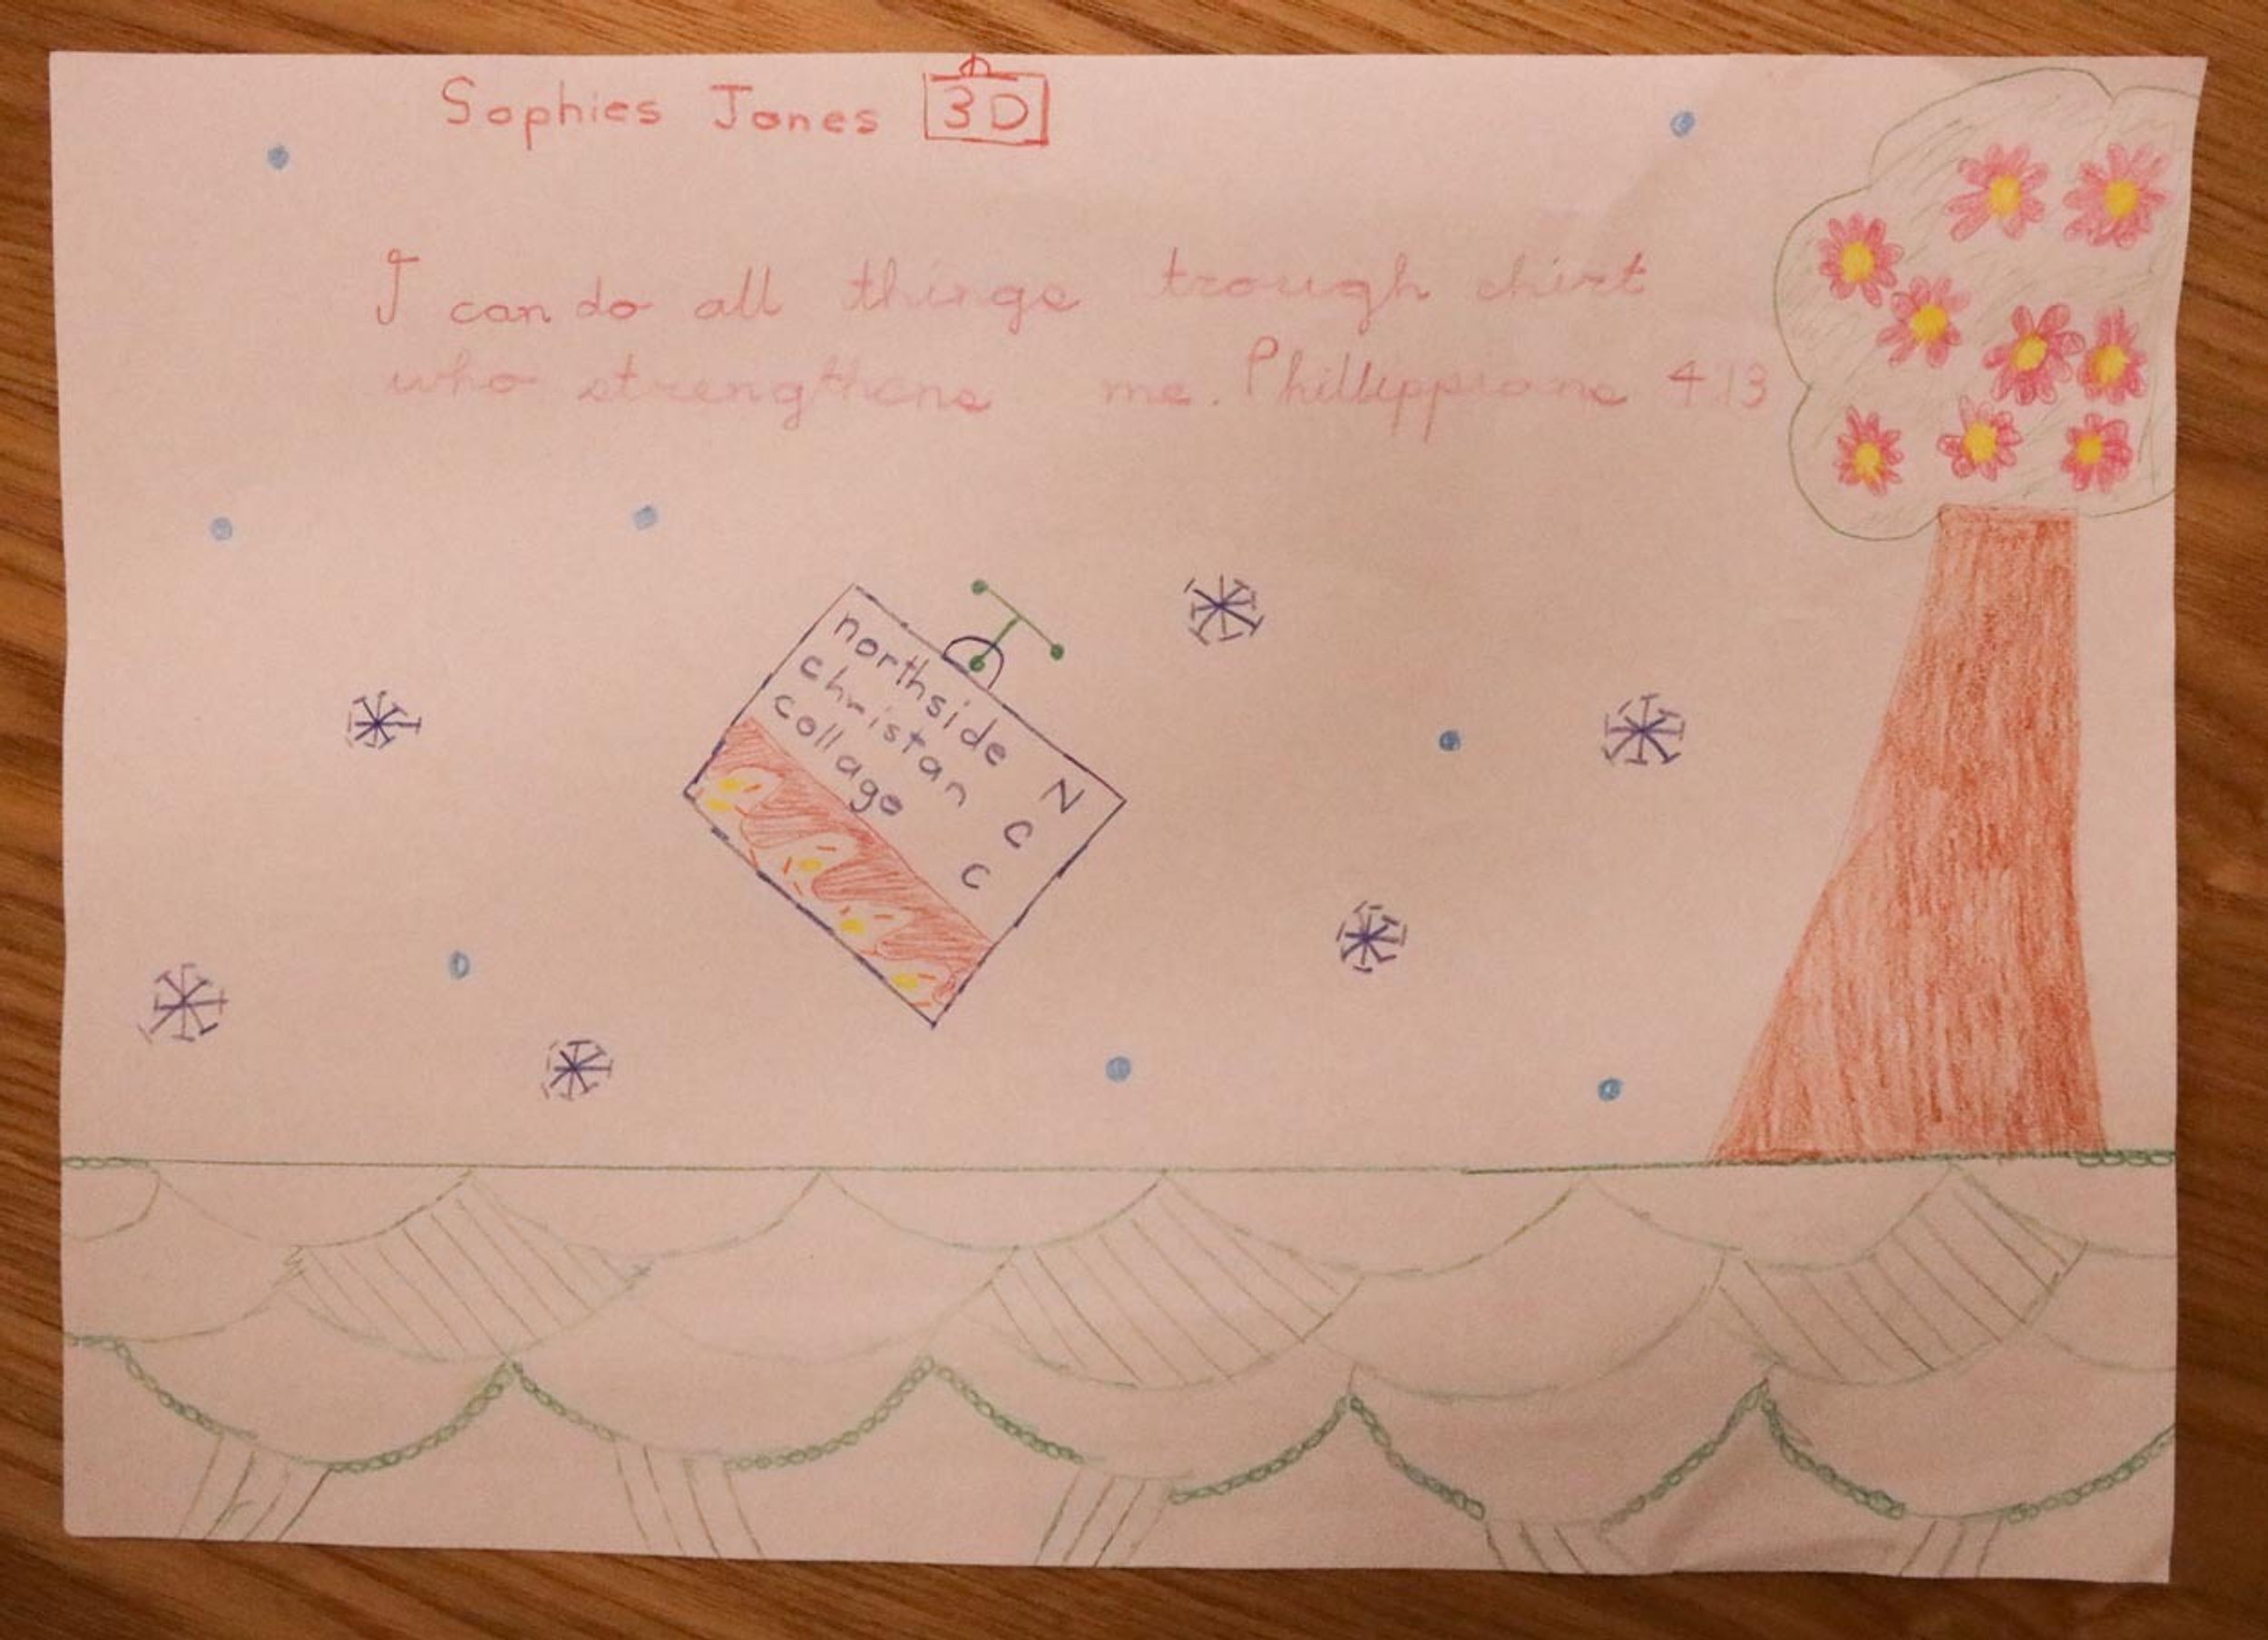 Sophies Jones 3D
I can do all things trough chirt
who strengthens me. Phillippians 4:13
northside N
christan C
collage C